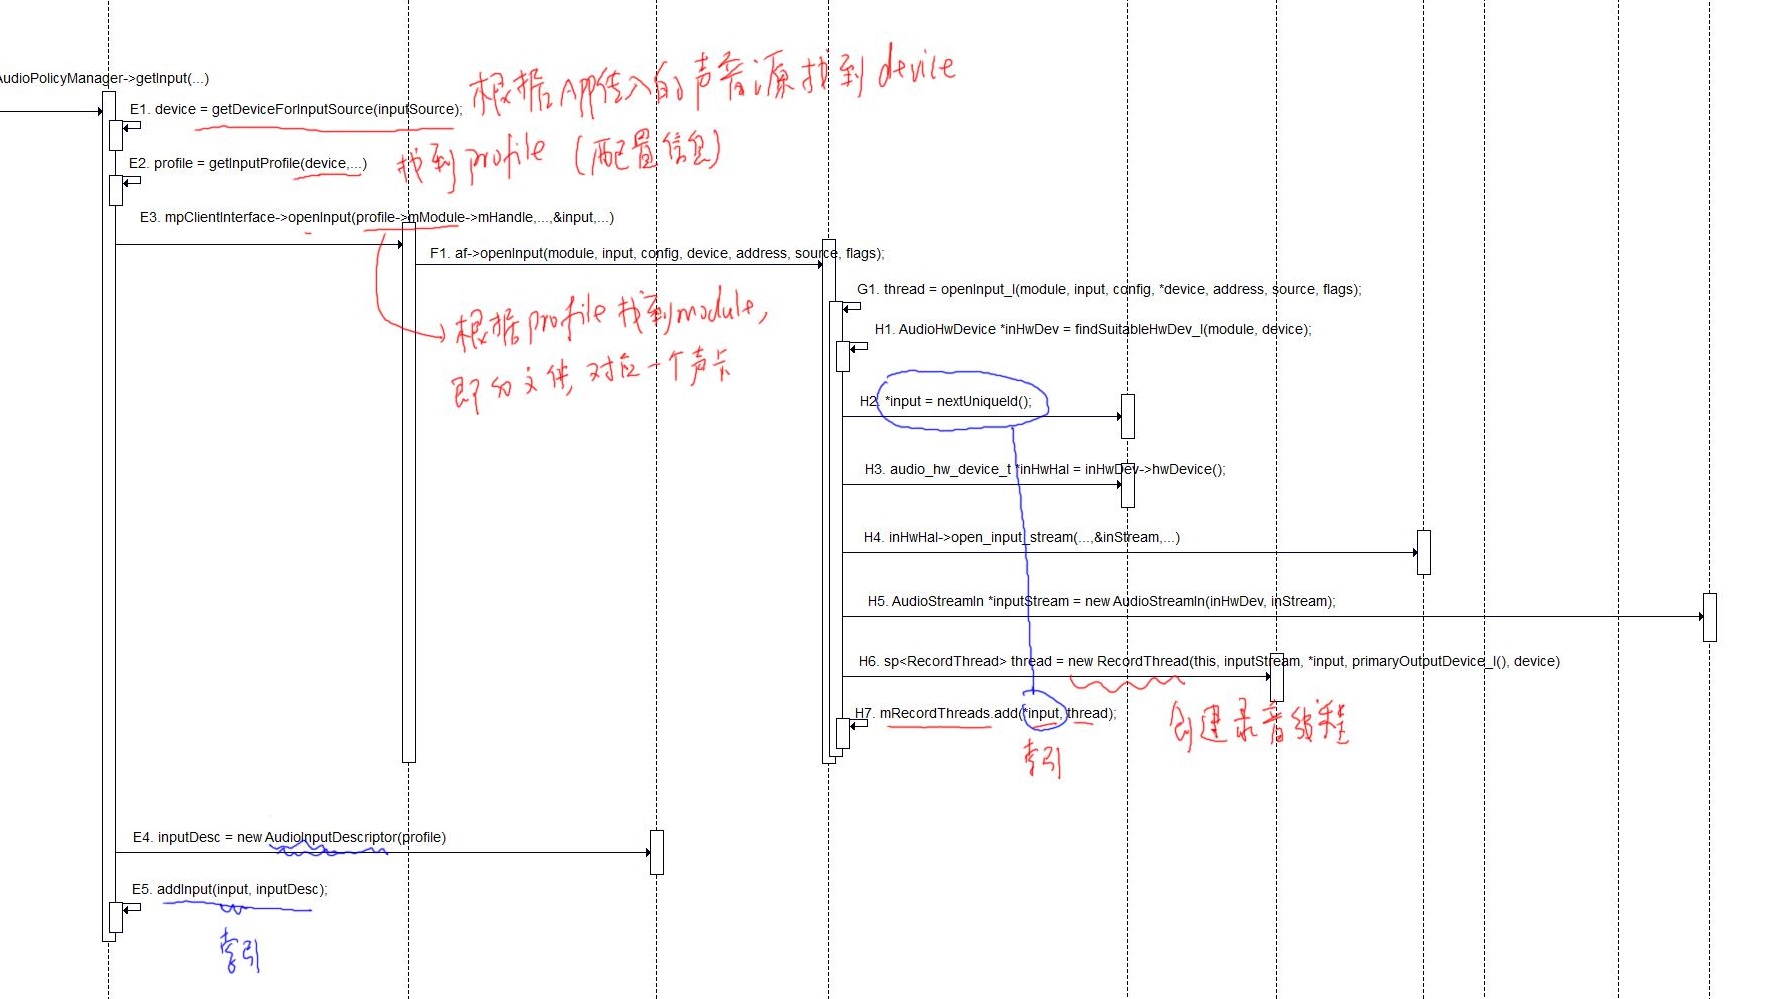 AudioPolicyManager->getInput(...)
E1. device = getDeviceForInputSource(inputSource);
根据App传入的声音源找到device
E2. profile = getInputProfile(device,...)
找到profile (配置信息)
E3. mpClientInterface->openInput(profile->mModule->mHandle,...,&input,...)
F1. af->openInput(module, input, config, device, address, source, flags);
G1. thread = openInput_l(module, input, config, *device, address, source, flags);
根据profile找到module,
即so文件, 对应一个声卡
H1. AudioHwDevice *inHwDev = findSuitableHwDev_l(module, device);
H2. *input = nextUniqueId();
H3. audio_hw_device_t *inHwHal = inHwDev->hwDevice();
H4. inHwHal->open_input_stream(...,&inStream,...)
H5. AudioStreamIn *inputStream = new AudioStreamIn(inHwDev, inStream);
H6. sp<RecordThread> thread = new RecordThread(this, inputStream, *input, primaryOutputDevice_l(), device)
H7. mRecordThreads.add(*input, thread);
创建录音线程
索引
E4. inputDesc = new AudioInputDescriptor(profile)
E5. addInput(input, inputDesc);
索引